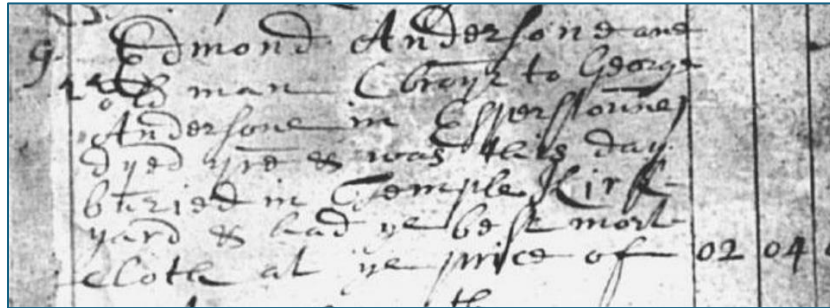 9 Edmond Andersone ane
old man & broyr to George
Andersone in Esperstoune
dyed yre & was this day
buried in Temple Kirk
yard & had ye best mort
cloth at ye price of 02 04